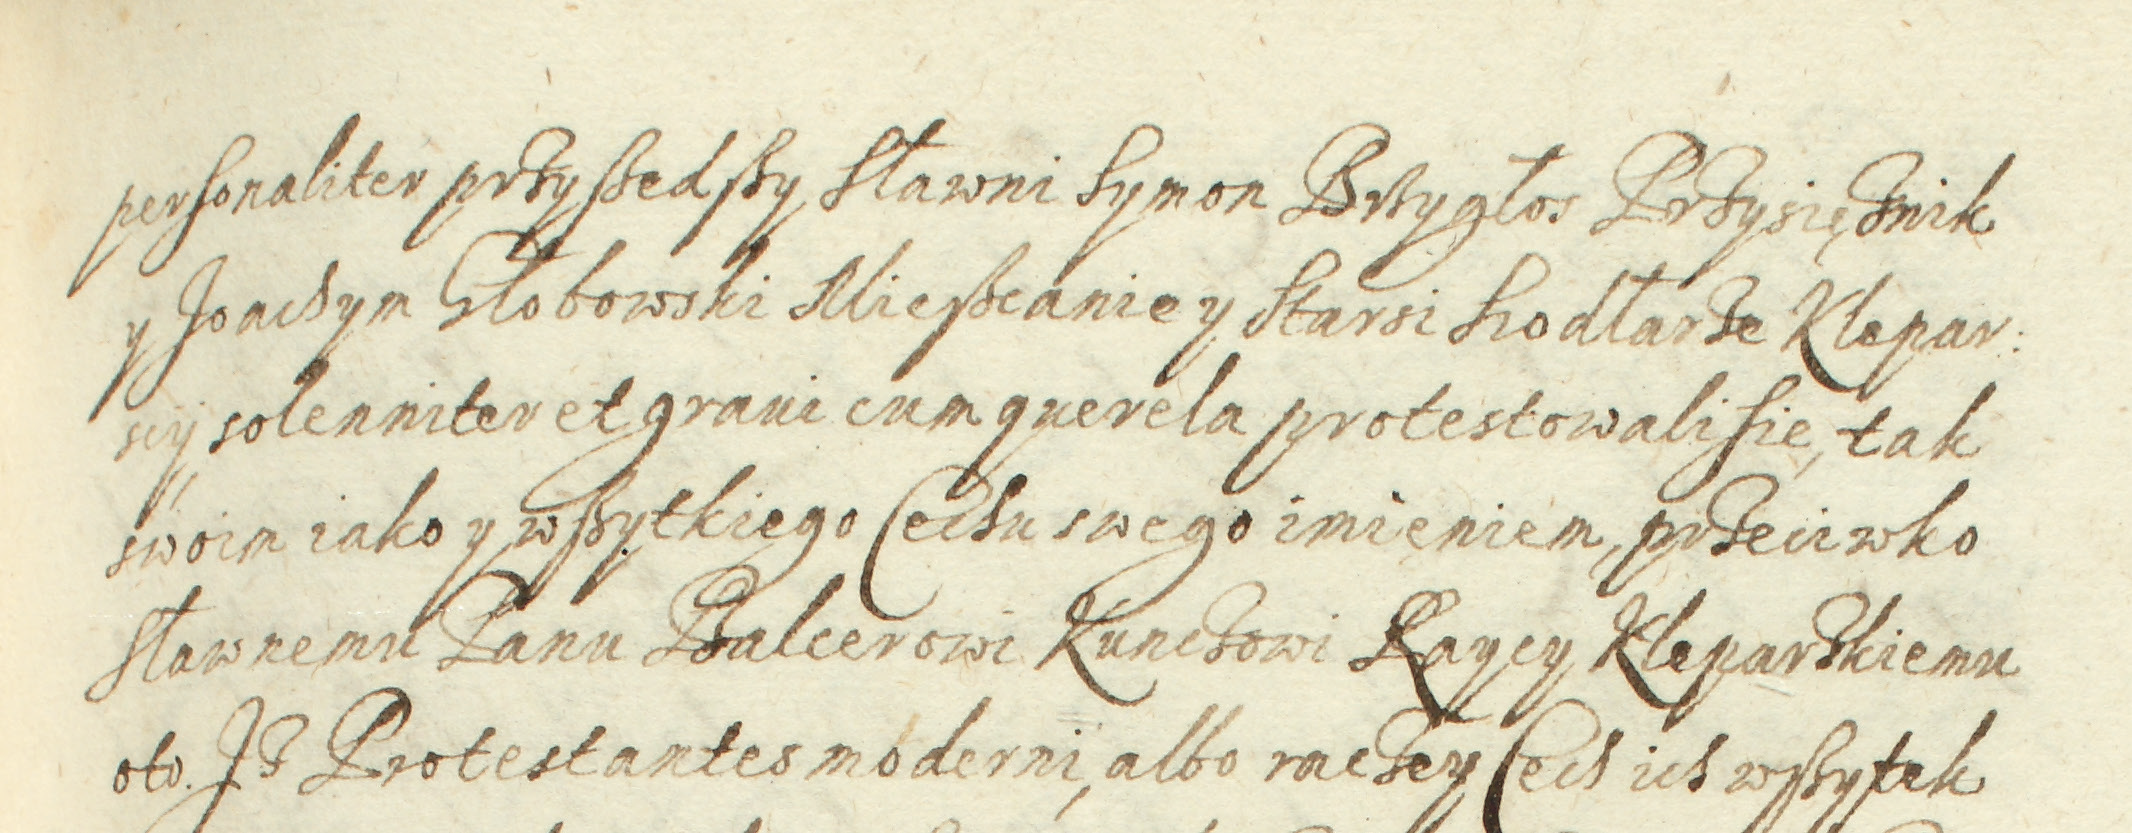 personaliter przyszedszy Sławni Symon Przygłos Przysiężnik
y Joachym Głobowski Mieszczanie y Starsi Siodlarze Klepar:
scy solenniter et graui cum querela protestowali sie, tak
swoim iako y wszytkiego Cechu swego imieniem, przeciwko
Sławnemu Panu Balcerowi Kunczowi Raycy Kleparskiemu
oto. Jz Protestantes moderni, albo raczey Cech ich wszytek